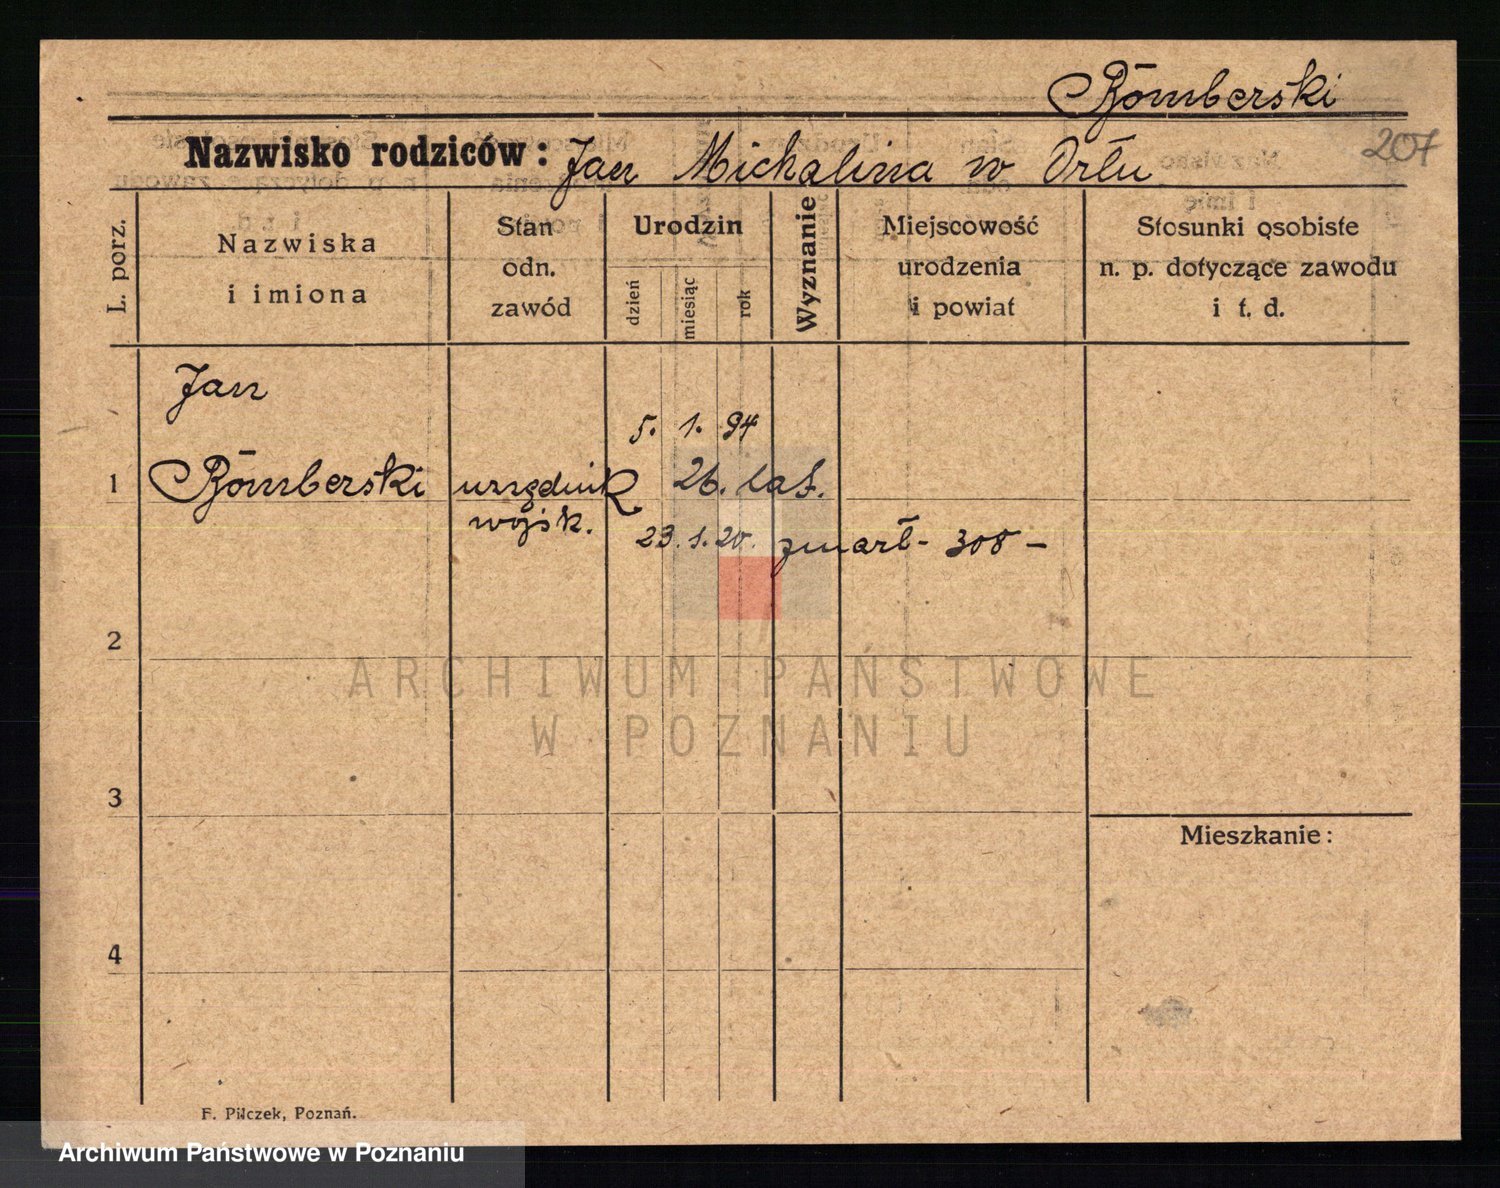 Bömberski
207
Nazwisko rodziców: Jan Michalina w Orłu
L. porz.
Nazwiska
i imiona
Stan
odn.
zawód
Urodzin
dzień
miesiąc
rok
Wyznanie
Miejscowość
urodzenia
i powiat
Stosunki osobiste
n. p. dotyczące zawodu
i t. d.
Jan
5. 1. 94
1 Bömberski urzędnik 26. lat.
wojsk. 23. 1. 20. zmarł - 308 -
2
ARCHIWUM PAŃSTWOWE
W POZNANIU
3
Mieszkanie:
4
F. Pilczek, Poznań.
Archiwum Państwowe w Poznaniu